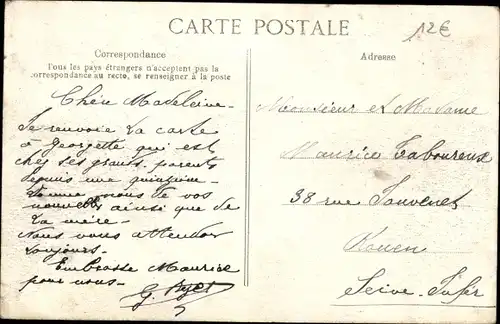 CARTE POSTALE
12€
Correspondance
Tous les pays étrangers n'acceptent pas la
correspondance au recto, se renseigner à la poste
Adresse
Chère Madeleine
Je renvoie la carte
à Georgette qui est
chez ses grants parents
depuis une quinzaine
nous de vos
nouvelles ainsi que de
la mère.
Nous vous attendons
toujours.
Embrasse Maurice
pour nous.
G.
Monsieur et Madame
Maurice Taboureux
38 rue Jouvenet
Rouen
Seine-Infer